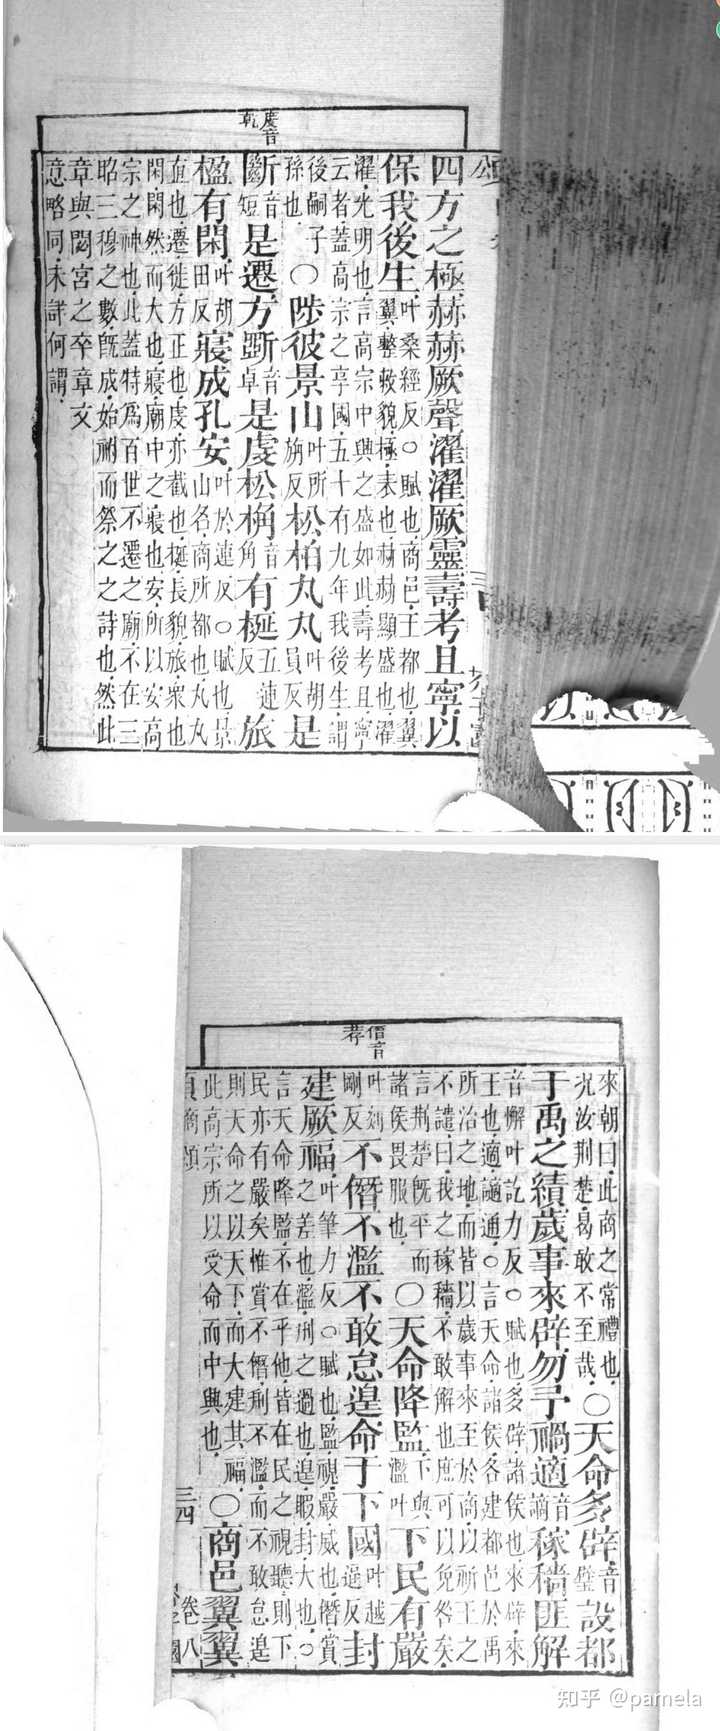 虔音乾
四方之極赫赫厥聲濯濯厥靈壽考且寧以
保我後生叶桑經反○賦也商邑王都也翼翼整敕貌極表也赫赫顯盛也濯
濯光明也言高宗中興之盛如此壽考且寧
云者蓋高宗之享國五十有九年我後生謂
後嗣子孫也○陟彼景山叶所旃反松柏丸丸叶胡員反是
斷音短是遷方斲音卓是虔松桷音角有梴五連反旅
楹有閑叶胡田反寢成孔安叶於連反○賦也景山名商所都也丸丸
直也遷徙方正也虔亦截也梴長貌旅衆也
閑閑然而大也寢廟中之寢也安所以安高
宗之神也此蓋特爲百世不遷之廟不在三
昭三穆之數旣成始祔而祭之之詩也然此
章與閟宮之卒章文
意略同未詳何謂
僭音荐
來朝曰此商之常禮也況汝荆楚曷敢不至哉○天命多辟音璧設都
于禹之績歲事來辟勿予禍適音謫稼穡匪解
音懈叶訖力反○賦也多辟諸侯也來辟來
王也適謫通○言天命諸侯各建都邑於禹
所治之地而皆以歲事來至於商以祈王之
不譴曰我之稼穡不敢解也庶可以免咎矣
言荆楚旣平而諸侯畏服也○天命降監下與濫叶下民有嚴
叶刻剛反不僭不濫不敢怠遑命于下國叶越逼反封
建厥福叶筆力反○賦也監視嚴威也僭賞之差也濫刑之過也遑暇封大也○
言天命降監不在乎他皆在民之視聽則下
民亦有嚴矣惟賞不僭刑不濫而不敢怠遑
則天命之以天下而大建其福
此高宗所以受命而中興也○商邑翼翼
商頌
三四
卷八
知乎 @pamela